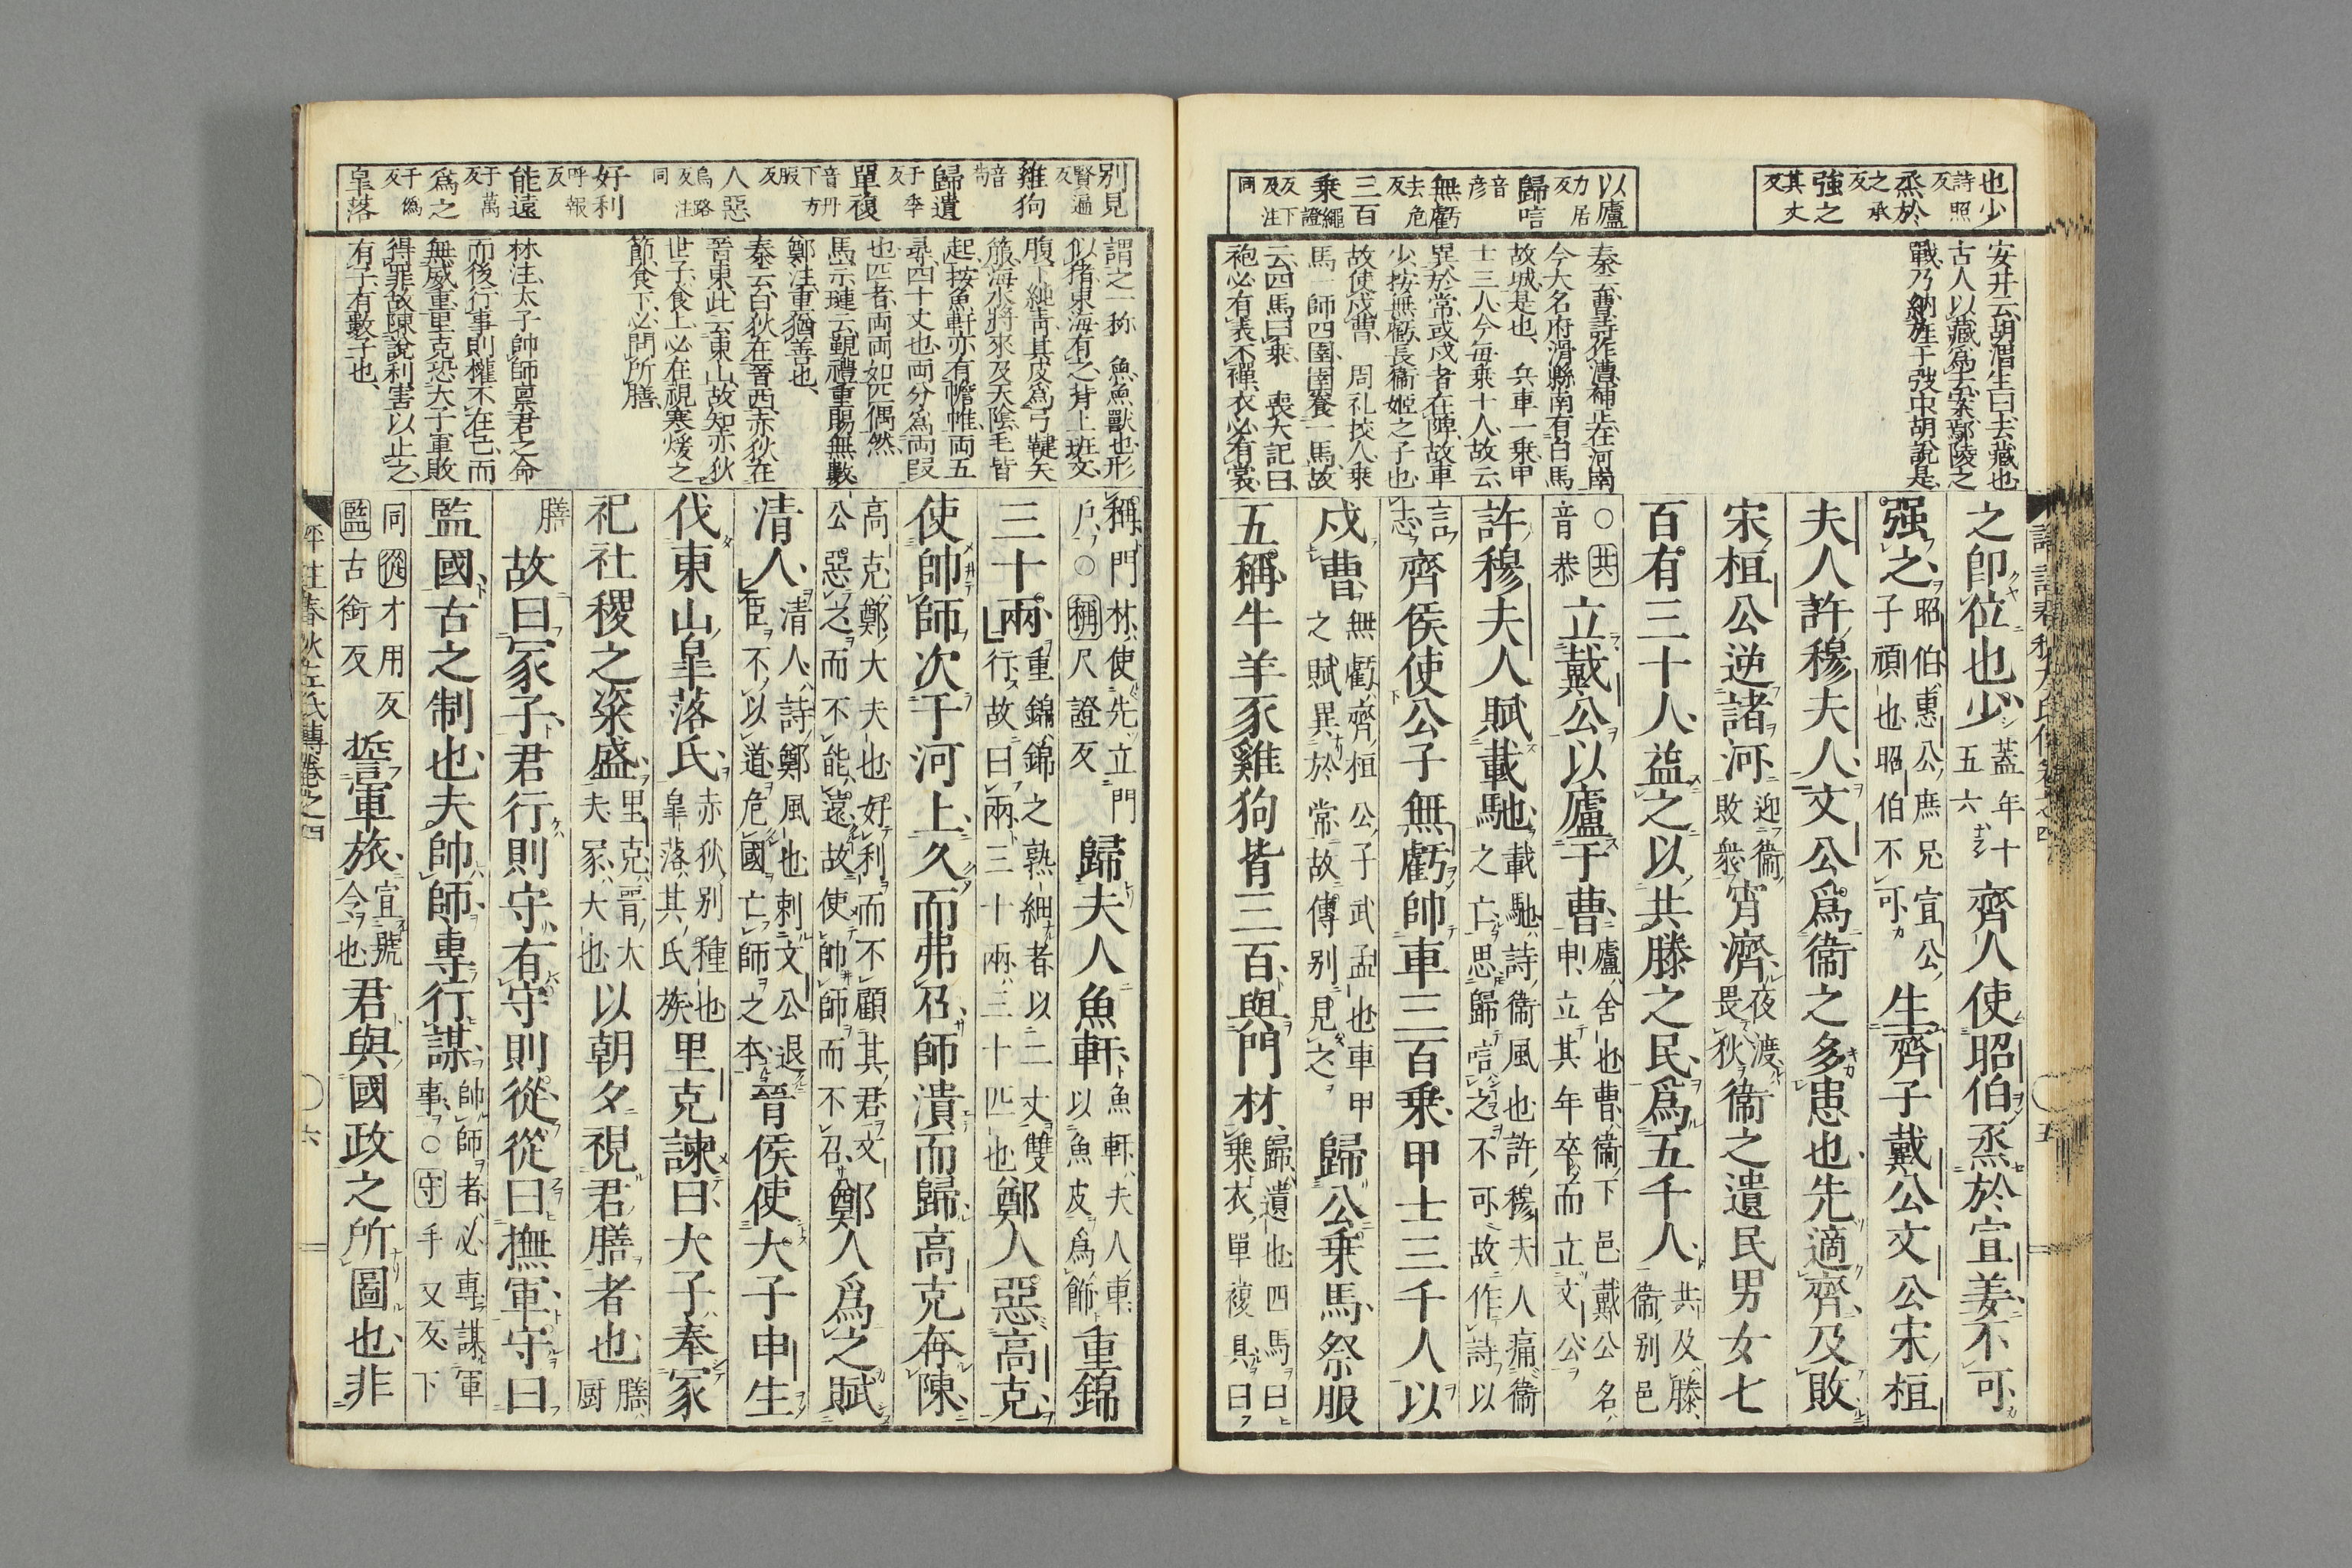 也少 詩照反
烝於 之承反
強之 其丈反
以廬 力居反
歸唁 音彦
無虧 去危反
三百
乗 繩證反下及注同
安井云胡渭生曰去藏也
古人以藏爲去案鄢陵之
戰乃納旌于弢中胡說是
秦云曹詩作漕補正在河南
今大名府滑縣南有白馬
故城是也 兵車一乗甲
士三人今毎乗十人故云
異於常或戍者在陴故車
少按無虧長衞姬之子也
故使戍曹 周礼挍人乗
馬一師四圉圉養一馬故
云四馬曰乗 喪大記曰
袍必有表不襌衣必有裳
之卽位也少蓋年十五六齊人使昭伯烝於宣姜不可
强之昭伯惠公庶兄宣公子頑也昭伯不可生齊子戴公文公宋桓
夫人許穆夫人文公爲衞之多患也先適齊及敗
宋桓公逆諸河迎衞敗衆宵濟夜渡畏狄衞之遺民男女七
百有三十人益之以共滕之民爲五千人共及滕衞別邑
○共音恭立戴公以廬于曹廬舍也曹衞下邑戴公名申立其年卒而立文公
許穆夫人賦載馳載馳詩衞風也許穆夫人痛衞之亡思歸唁之不可故作詩以
言志齊侯使公子無虧帥車三百乗甲士三千人以
戍曹無虧齊桓公子武孟也車甲之賦異於常故傳別見之歸公乗馬祭服
五稱牛羊豕雞狗皆三百與門材歸遺也四馬曰乗衣單複具曰
別見 賢遍反
雞狗 音苟
歸遺 于季反
單複 音丹下方服反
人惡 烏路反注同
好利 呼報反
能遠 于萬反
爲之 于僞反
皐落
謂之一称 魚魚獸也形
似猪東海有之背上班文
腹下純青其皮爲弓鞬矢
箙海水將來及天陰毛皆
起按魚軒亦有幨帷両五
尋四十丈也両分爲両段
也匹者両両如匹偶然
馬宗璉云覲禮重賜無數
鄭注重猶善也
秦云白狄在晉西赤狄在
晉東此云東山故知赤狄
世子食上必在視寒煖之
節食下必問所膳
林注太子帥師禀君之命
而後行事則權不在己而
無威重里克恐太子軍敗
得罪故陳說利害以止之
有子有數子也
稱門材使先立門戶○稱尺證反歸夫人魚軒魚軒夫人車以魚皮爲飾重錦
三十兩重錦錦之熟細者以二丈雙行故曰兩三十兩三十匹也鄭人惡高克
使帥師次于河上久而弗召師潰而歸高克奔陳
高克鄭大夫也好利而不顧其君文公惡之而不能遠故使帥師而不召鄭人爲之賦
清人清人詩鄭風也刺文公退臣不以道危國亡師之本晉侯使大子申生
伐東山皐落氏赤狄別種也皐落其氏族里克諫曰大子奉冢
祀社稷之粢盛里克晉大夫冢大也以朝夕視君膳者也膳厨
膳故曰冢子君行則守有守則從從曰撫軍守曰
監國古之制也夫帥師專行謀帥師者必專謀軍事○守手又反下
同從才用反監古銜反誓軍旅宣號令也君與國政之所圖也非
評註春秋左氏傳卷之四 六